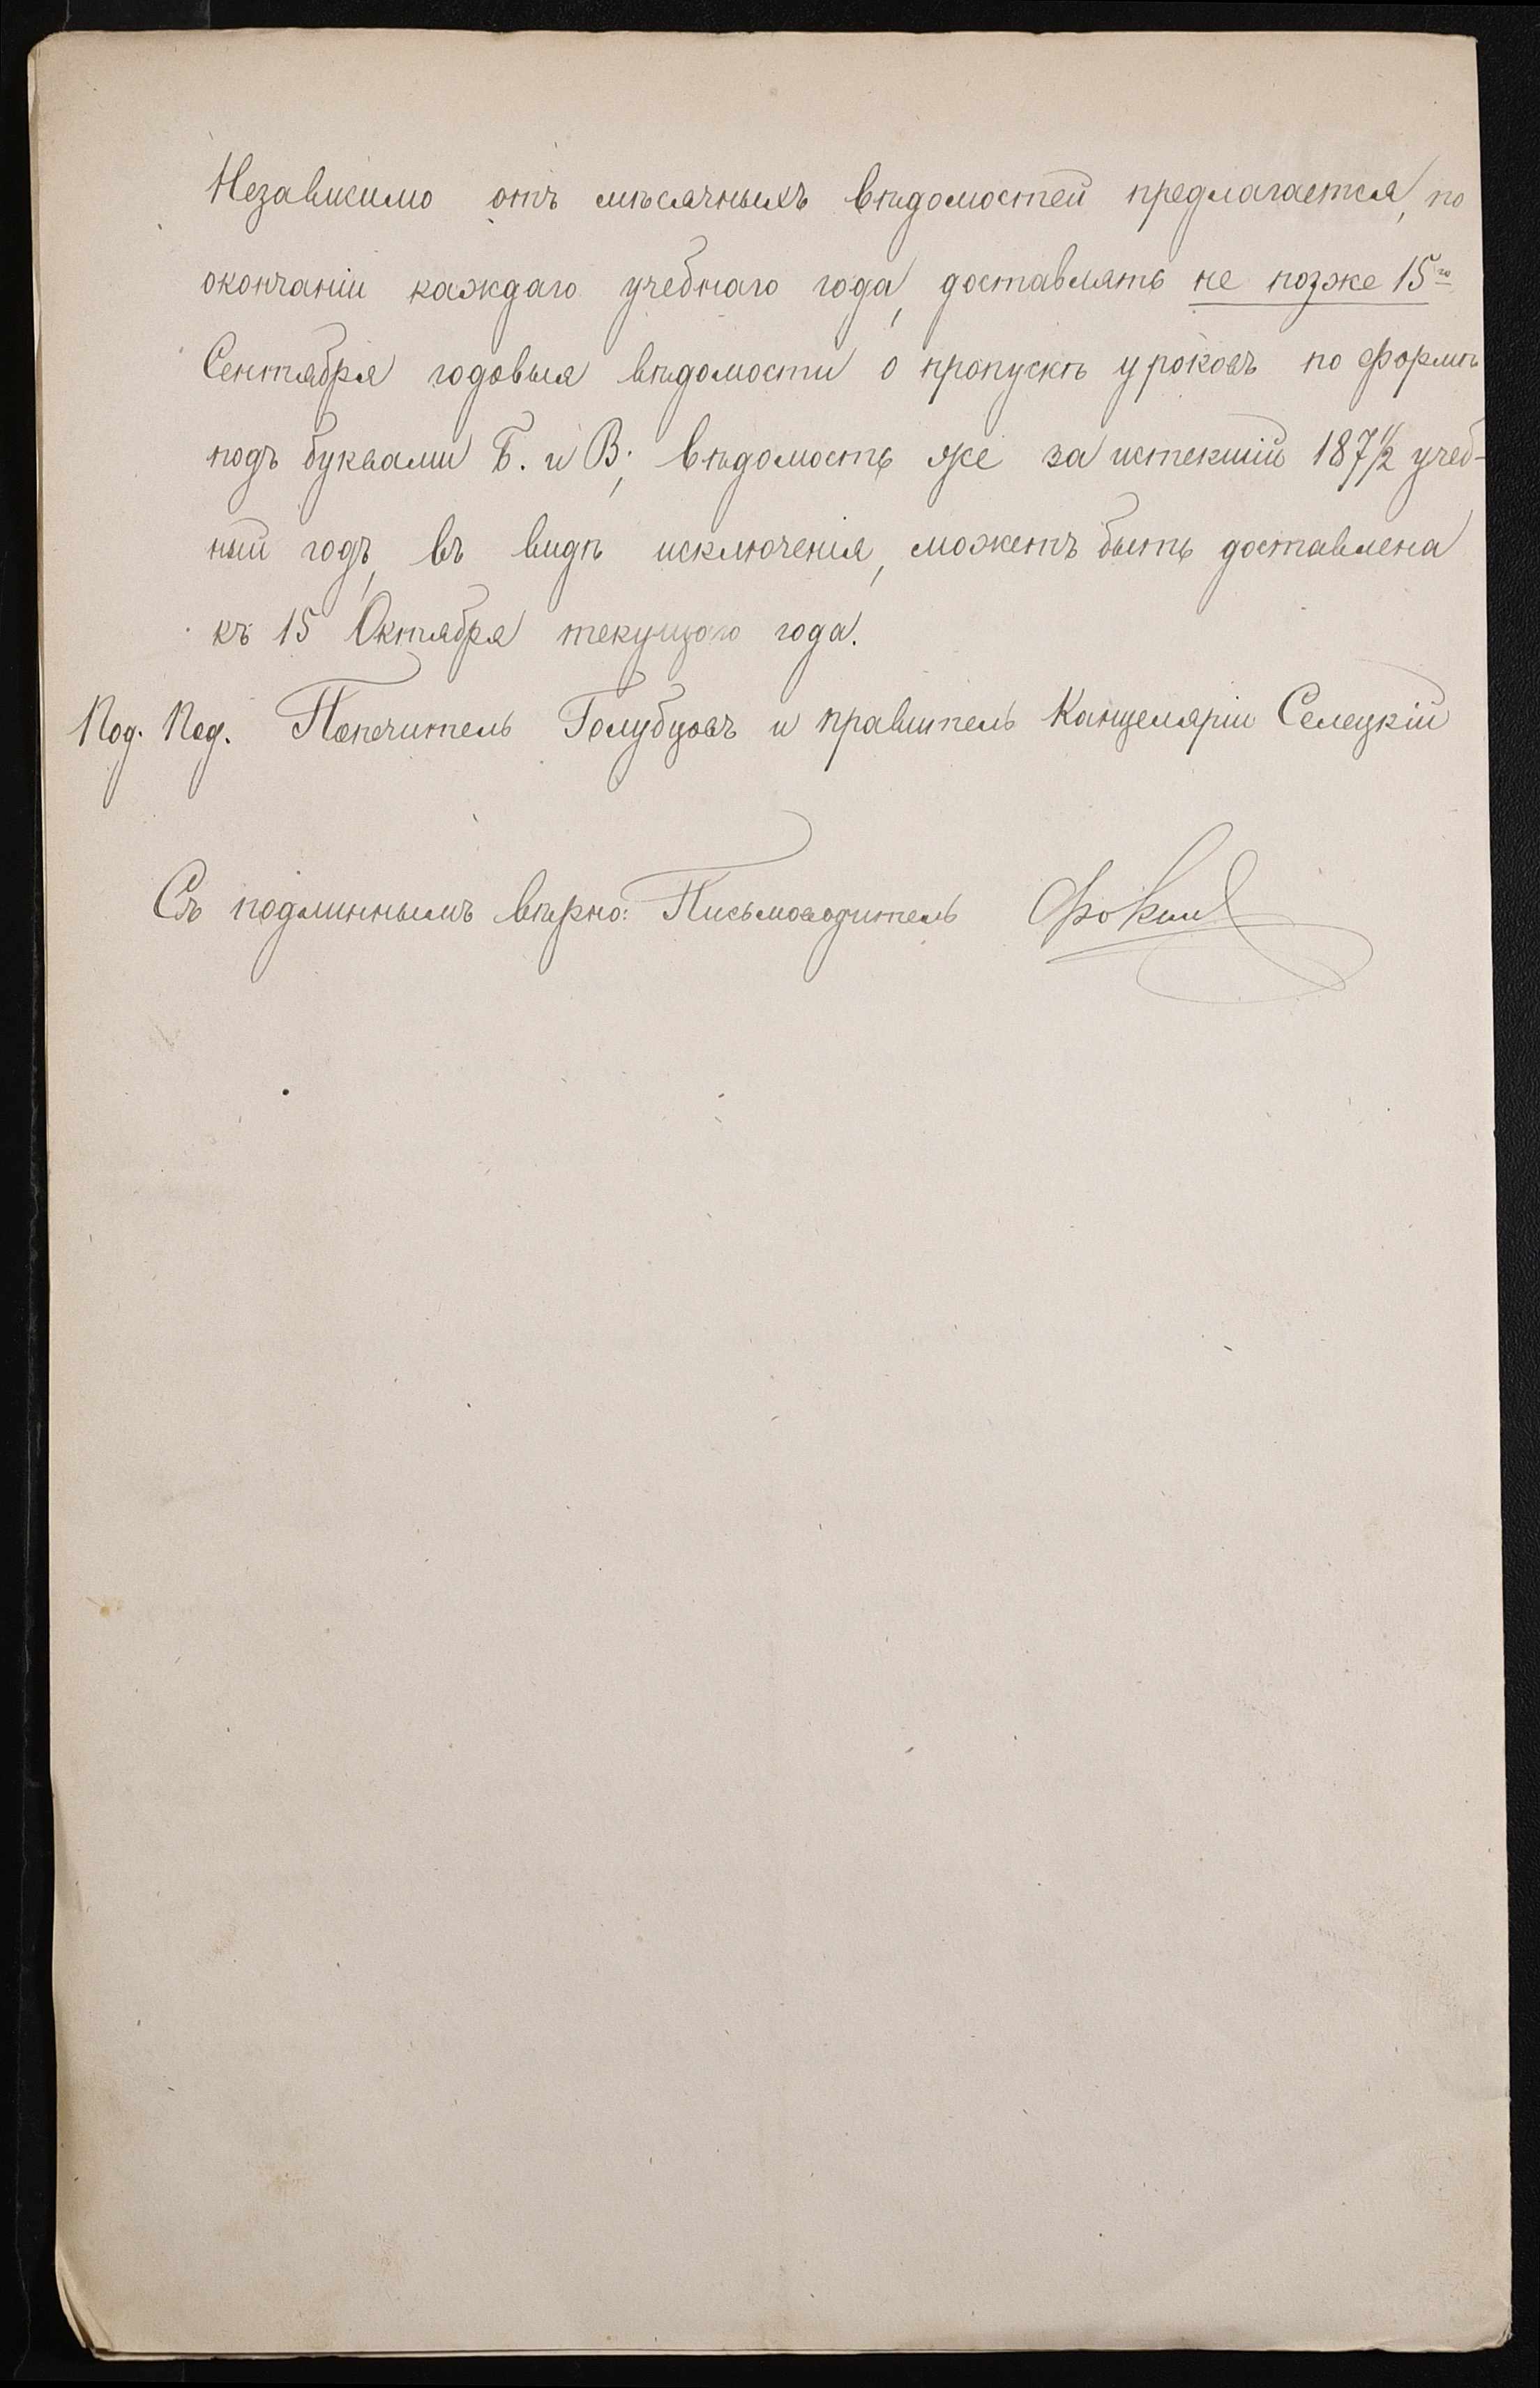 Независимо отъ мѣсячныхъ вѣдомостей предлагается, по
окончаніи каждаго учебнаго года, доставлять не позже 15го
Сентября годовыя вѣдомости о пропускѣ уроковъ по формѣ
подъ буквами Б. и В; вѣдомость же за истекшій 1871/2 учеб-
ный годъ, въ видѣ исключенія, можетъ быть доставлена
къ 15 Октября текущаго года.
Под. Под. Попечитель Голубцовъ и правитель Канцеляріи Селецкій
Съ подлиннымъ вѣрно: Письмоводитель Фокин